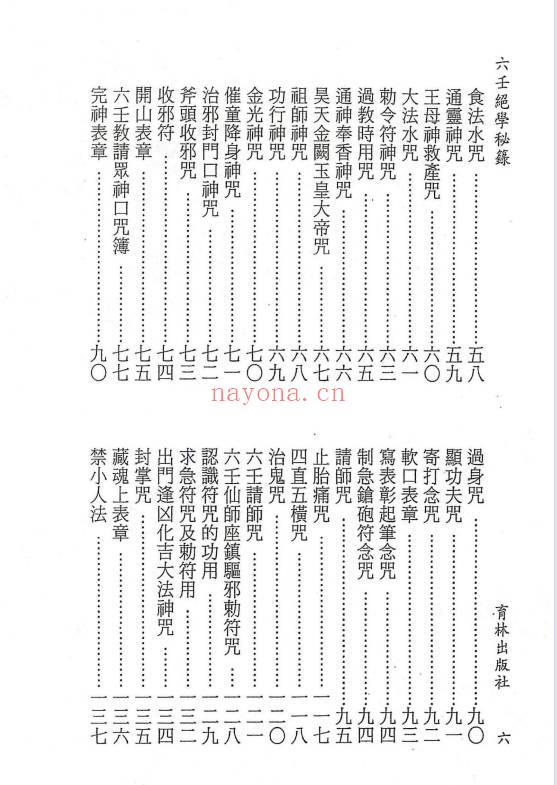 六壬絕學秘籙
食法水咒……五八
通靈神咒……五九
王母神救產咒……六〇
大法水咒……六一
勅令符神咒……六三
過教時用咒……六五
通神奉香神咒……六六
昊天金闕玉皇大帝咒……六七
祖師神咒……六八
功行神咒……六九
金光神咒……七〇
催童降身神咒……七一
治邪封門口神咒……七二
斧頭收邪咒……七三
收邪符……七四
開山表章……七五
六壬教請眾神口咒簿……七七
完神表章……九〇
過身咒……九〇
顯功夫咒……九一
寄打念咒……九二
軟口表章……九三
寫表彰起筆念咒……九四
制急鎗砲符念咒……九四
請師咒……九五
止胎痛咒……一一七
四直五橫咒……一一八
治鬼咒……一二〇
六壬請師咒……一二一
六壬仙師座鎮驅邪勅符咒……一二八
認識符咒的功用……一二九
求急符咒及勅符用……一三二
出門逢凶化吉大法神咒……一三四
封掌咒……一三五
藏魂上表章……一三六
禁小人法……一三七
育林出版社
六
nayona.cn